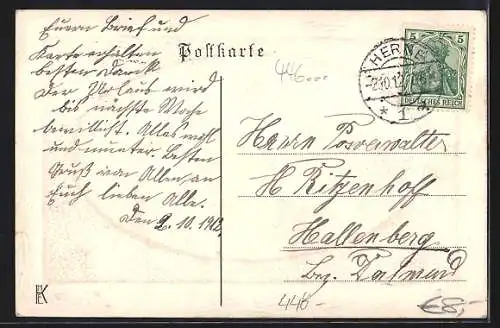 Euern Brief und
Karte erhalten
besten Dank
Der Urlaub wird
bis nächste Woche
bewilligt. Alles wohl
und munter. Besten
Gruß von Allen, an
Euch lieben Alle.
Den 2.10.1912.
Postkarte
446
HERNE
2.10.12
* 1
5 5
DEUTSCHES REICH
Herrn Postverwalter
H Ritzenhoff
Hallenberg
Bez. Dortmund
446-
€8,-